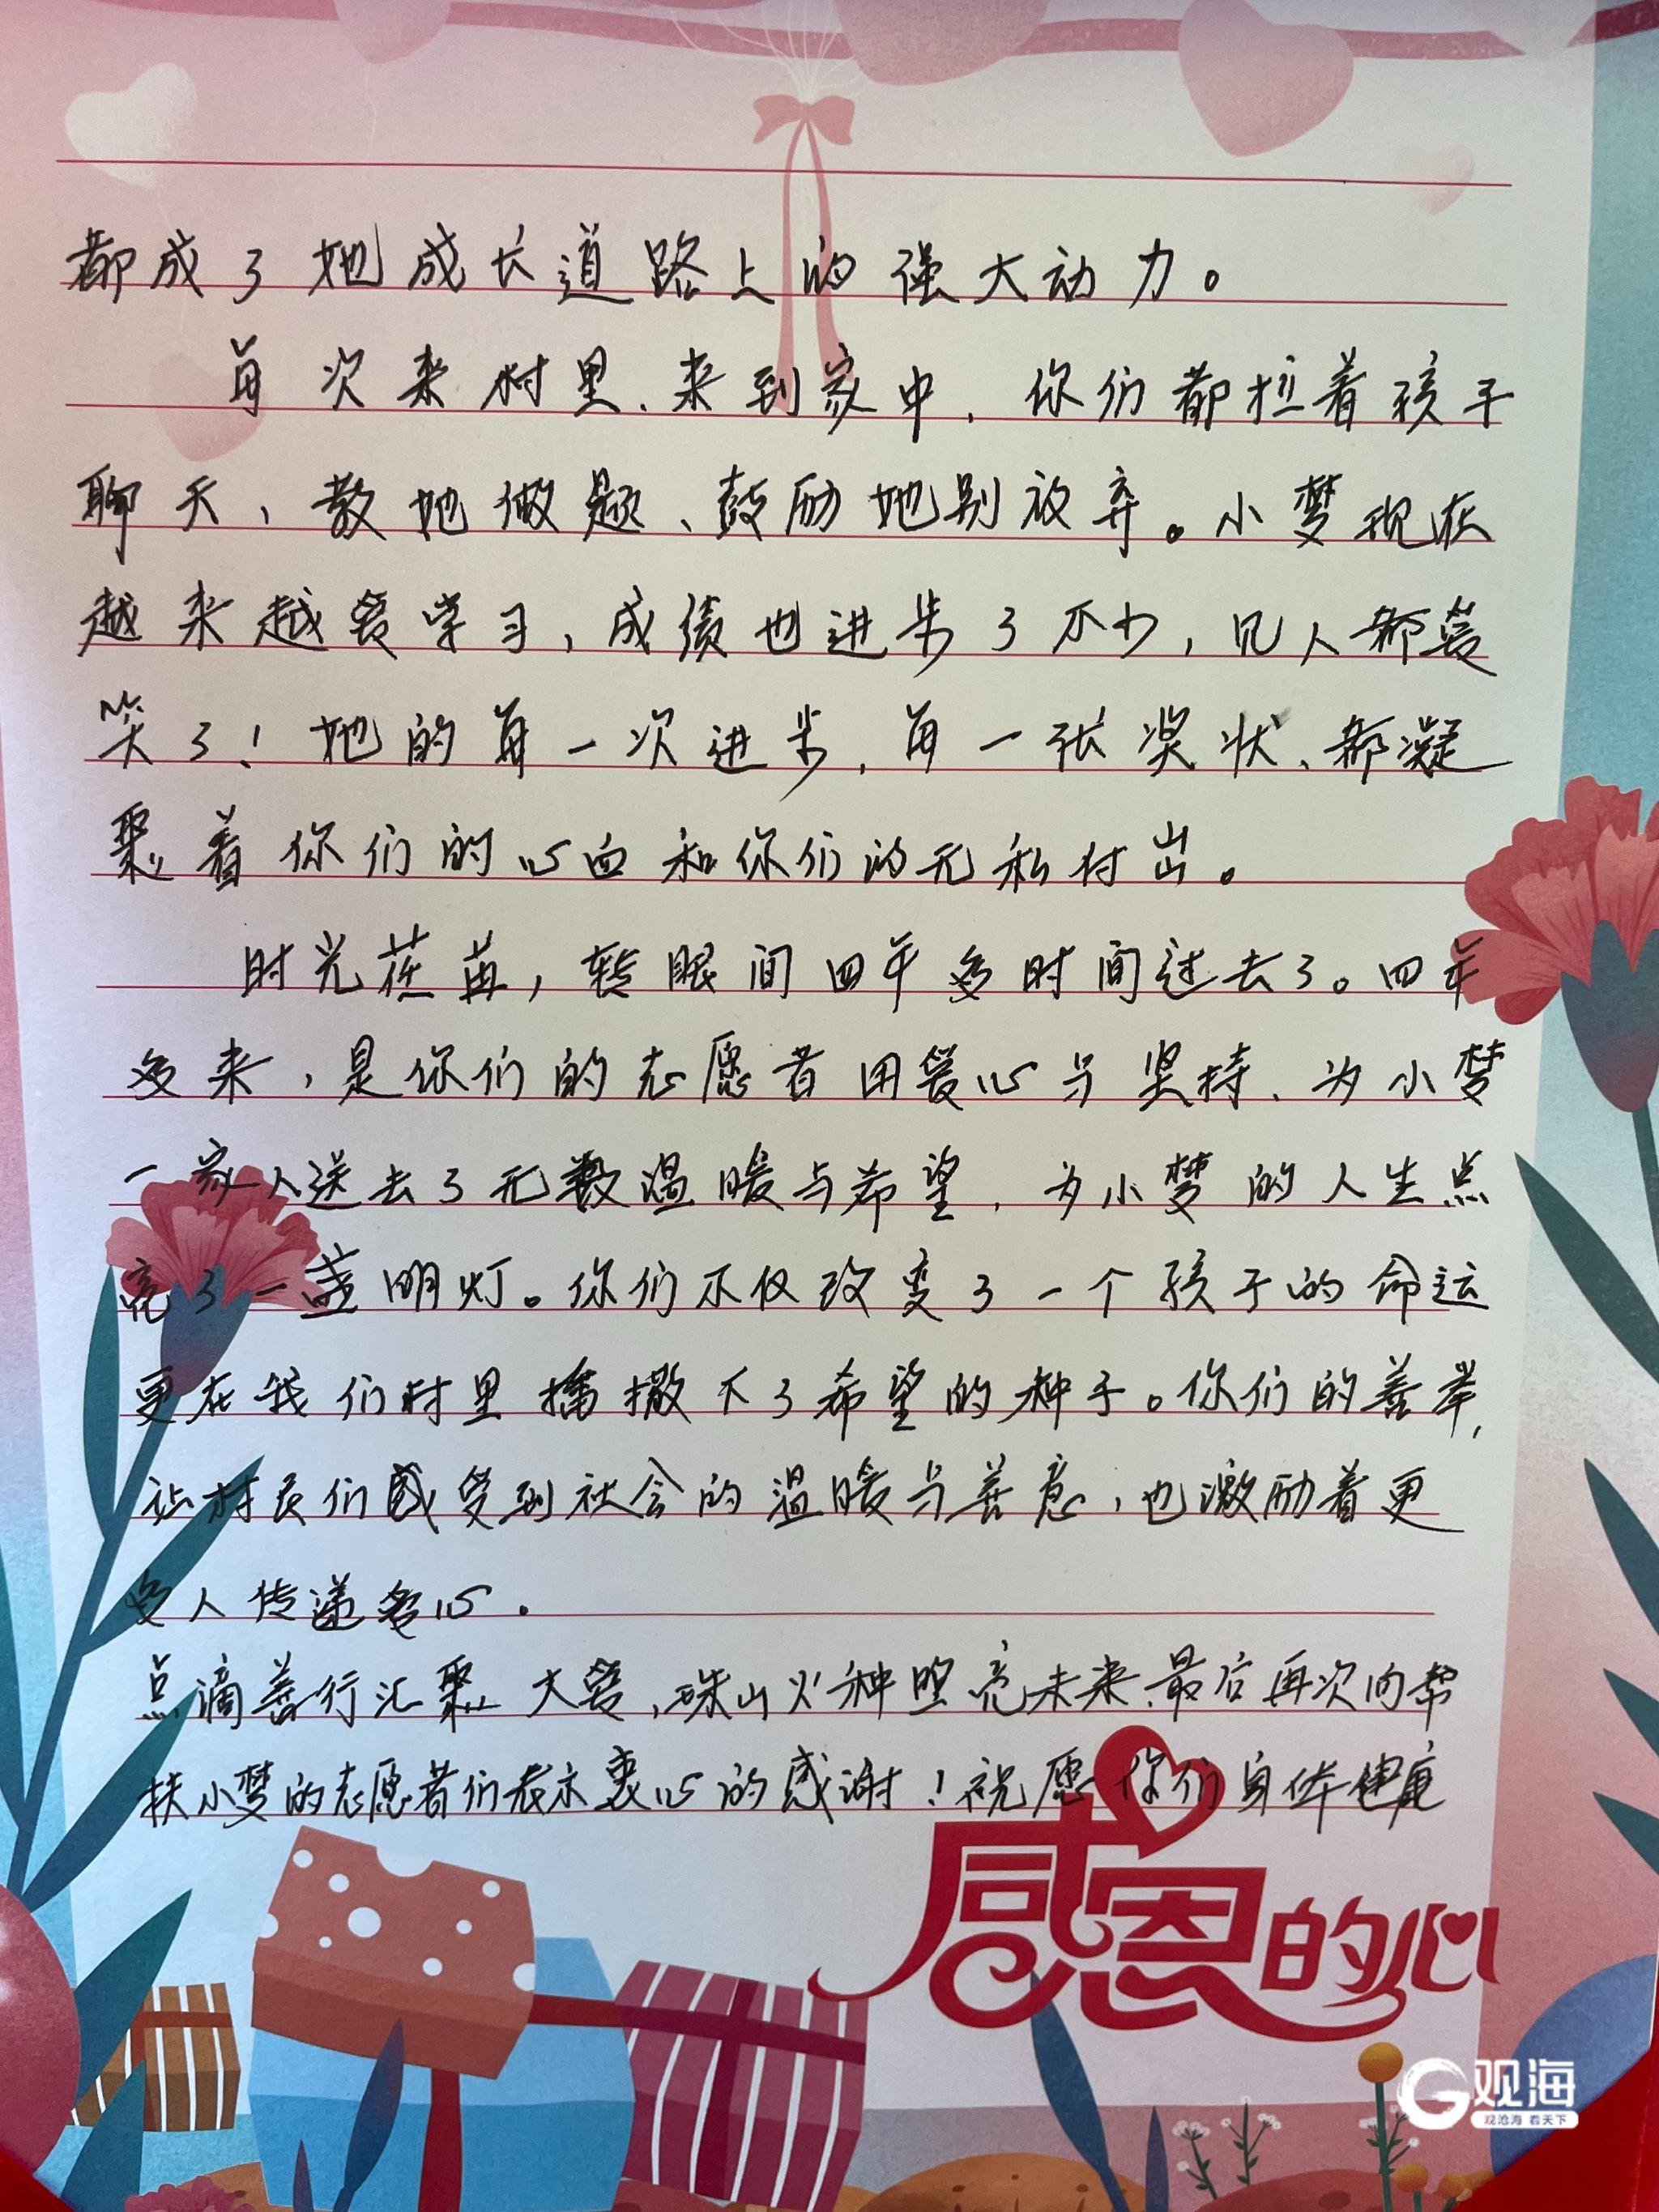 都成了她成长道路上的强大动力。
每次来村里、来到家中，你们都拉着孩子
聊天，教她做题、鼓励她别放弃。小梦现在
越来越爱学习，成绩也进步了不少，见人都爱
笑了！她的每一次进步，每一张奖状、都凝
聚着你们的心血和你们的无私付出。
时光荏苒，转眼间四年多时间过去了。四年
多来，是你们的志愿者用爱心与坚持、为小梦
一家人送去了无数温暖与希望，为小梦的人生点
亮了一盏明灯。你们不仅改变了一个孩子的命运
更在我们村里播撒下了希望的种子。你们的善举，
让村民们感受到社会的温暖与善意，也激励着更
多人传递爱心.
点滴善行汇聚大爱，珠山火种照亮未来.最后再次向帮
扶小梦的志愿者们表示衷心的感谢！祝愿你们身体健康
感恩的心
观海
观沧海 看天下